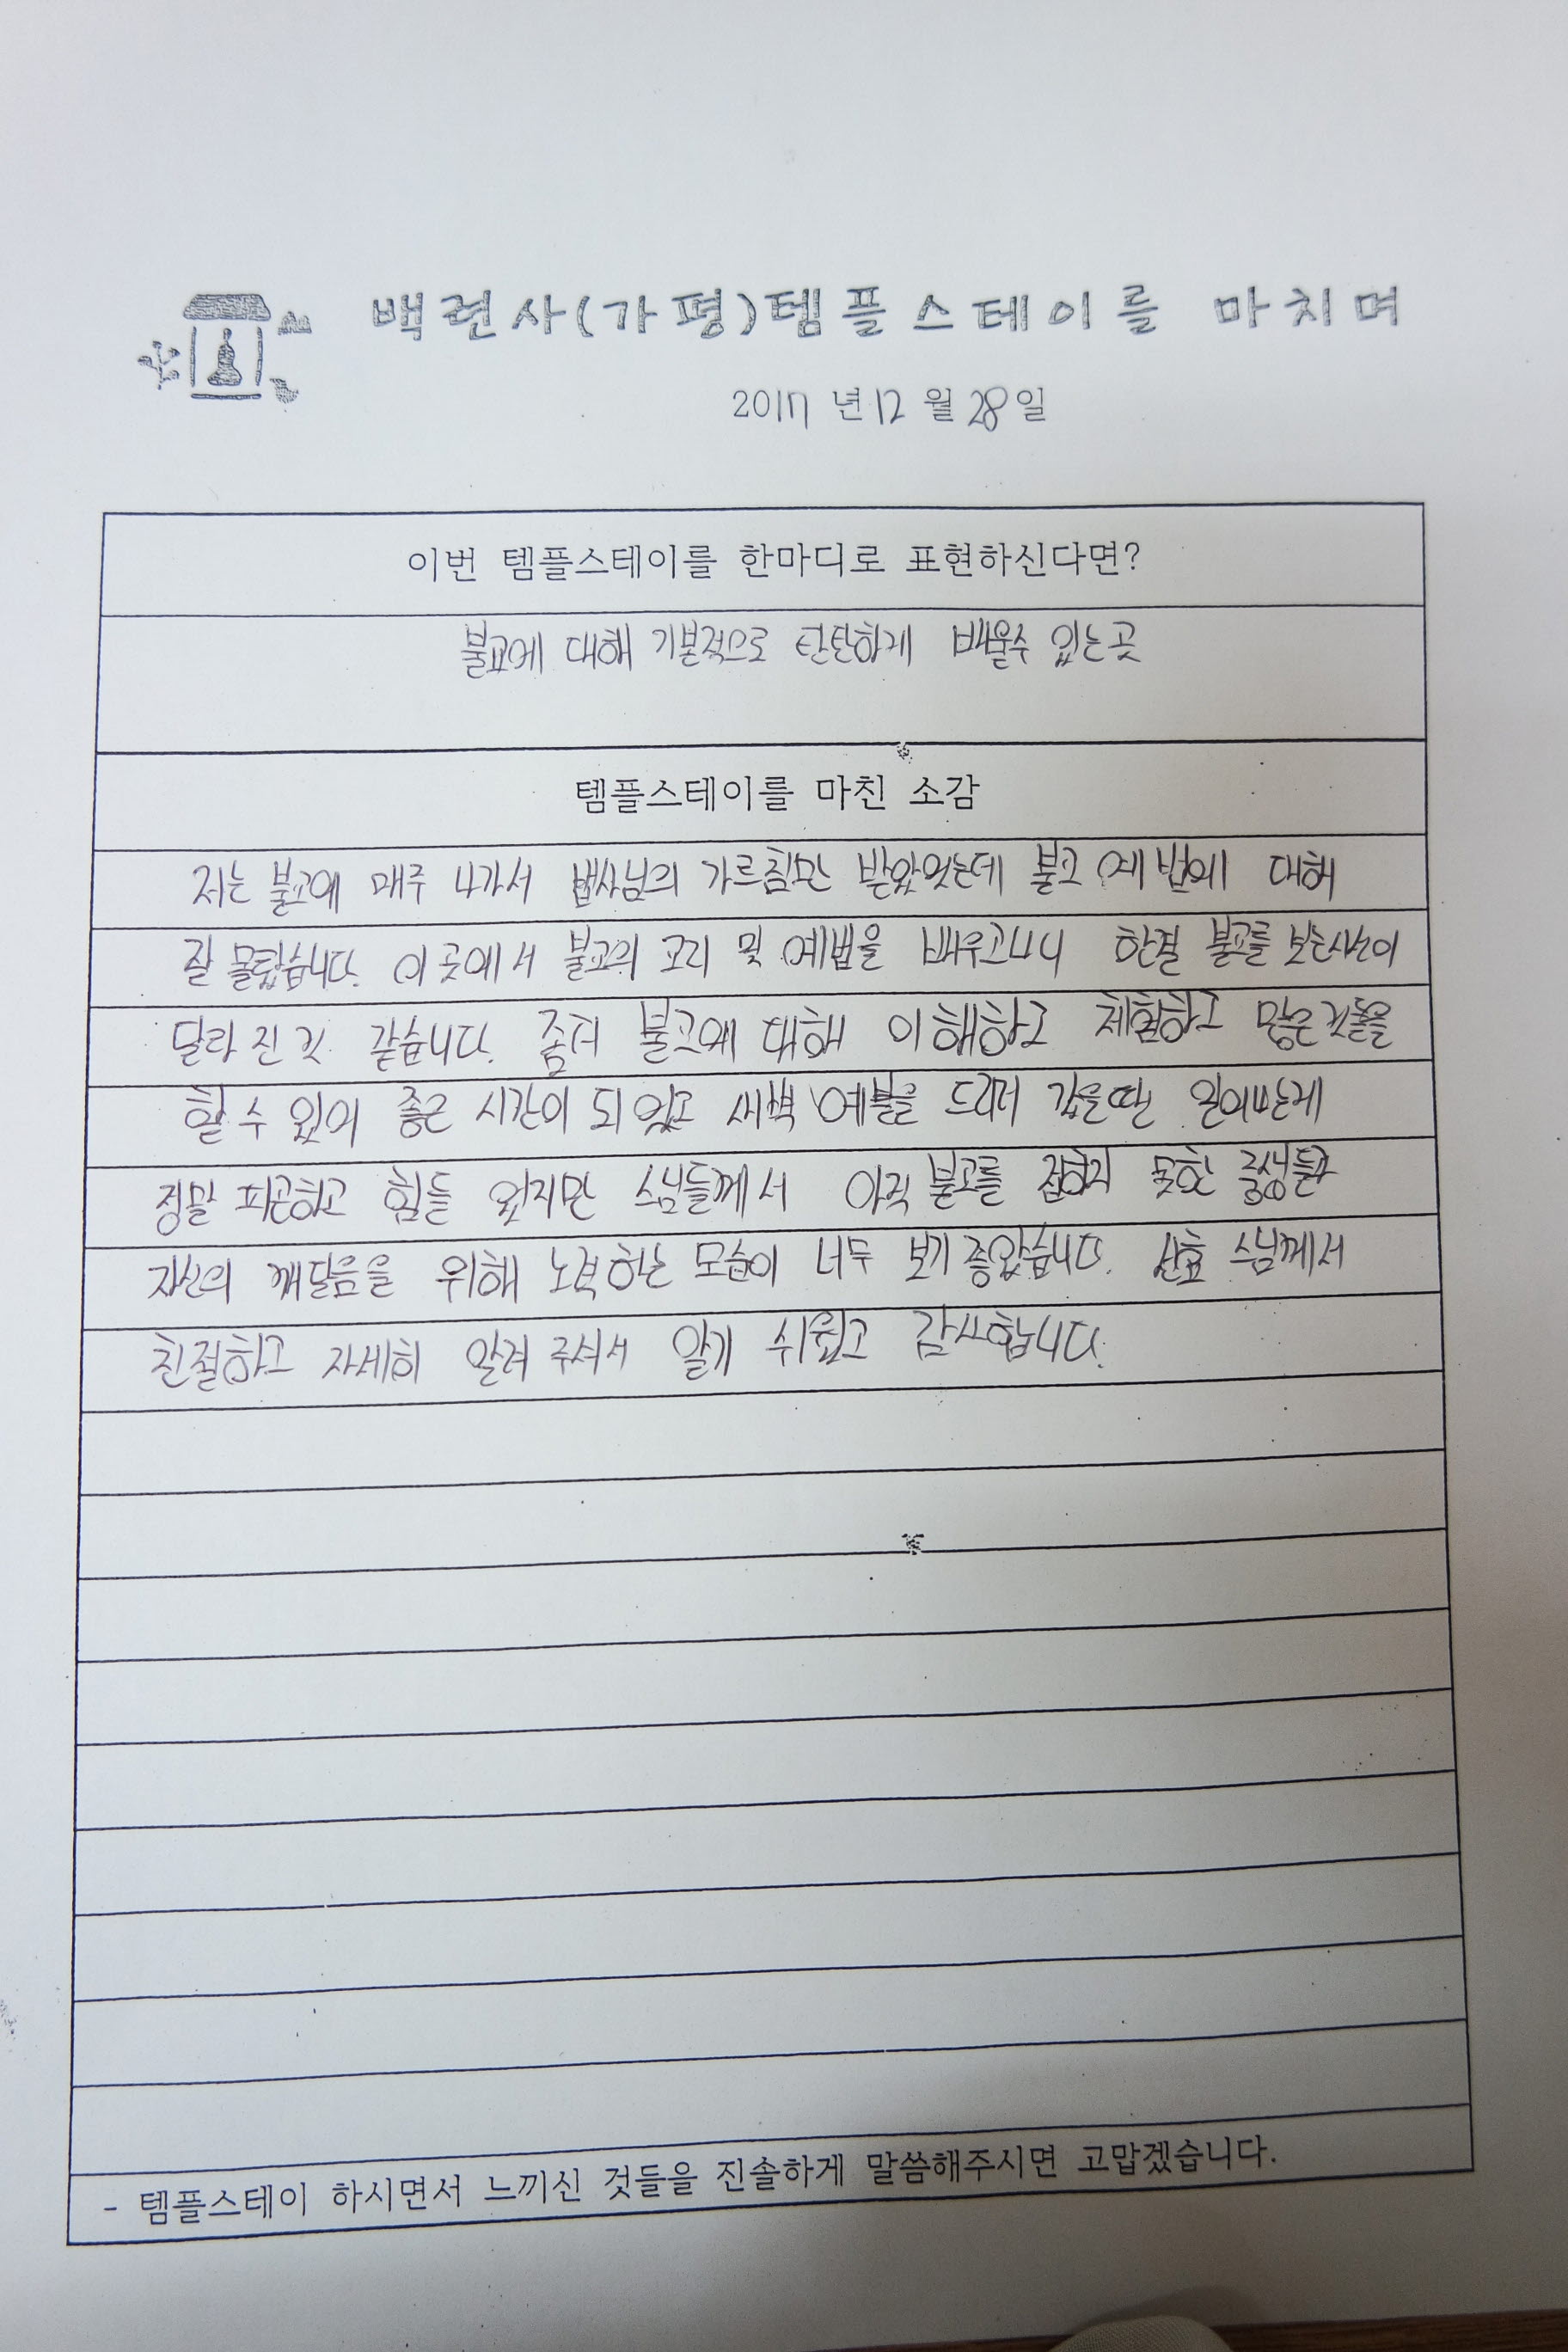 백련사(가평)템플스테이를 마치며
2017 년 12 월 28 일
이번 템플스테이를 한마디로 표현하신다면?
불교에 대해 기본적으로 탄탄하게 배울수 있는 곳
템플스테이를 마친 소감
저는 불교에 매주 나가서 법사님의 가르침만 받았었는데 불교 예법에 대해
잘 몰랐습니다. 이 곳에서 불교의 교리 및 예법을 배우고나니 한결 불교를 보는시선이
달라 진 것 같습니다. 좀더 불교에 대해 이해하고 체험하고 많은것들을
할 수 있어 좋은 시간이 되었고 새벽 예불을 드리러 갔을땐 일어나는게
정말 피곤하고 힘들 었지만 스님들께서 아직 불교를 접하지 못한 중생들과
자신의 깨달음을 위해 노력하는 모습이 너무 보기 좋았습니다. 선효 스님께서
친절하고 자세히 알려 주셔서 알기 쉬웠고 감사합니다.
- 템플스테이 하시면서 느끼신 것들을 진솔하게 말씀해주시면 고맙겠습니다.